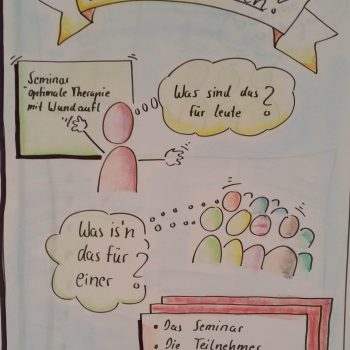 Seminar
"optimale Therapie
mit Wundaufl
Was sind das
für leute ?
Was is'n
das für
einer ?
• Das Seminar
• Die Teilnehmer